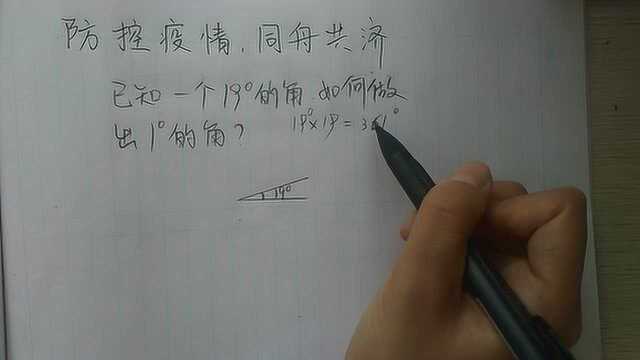 防控疫情,同舟共济
已知一个19°的角 如何做
出1°的角?
19°×19=361°
19°